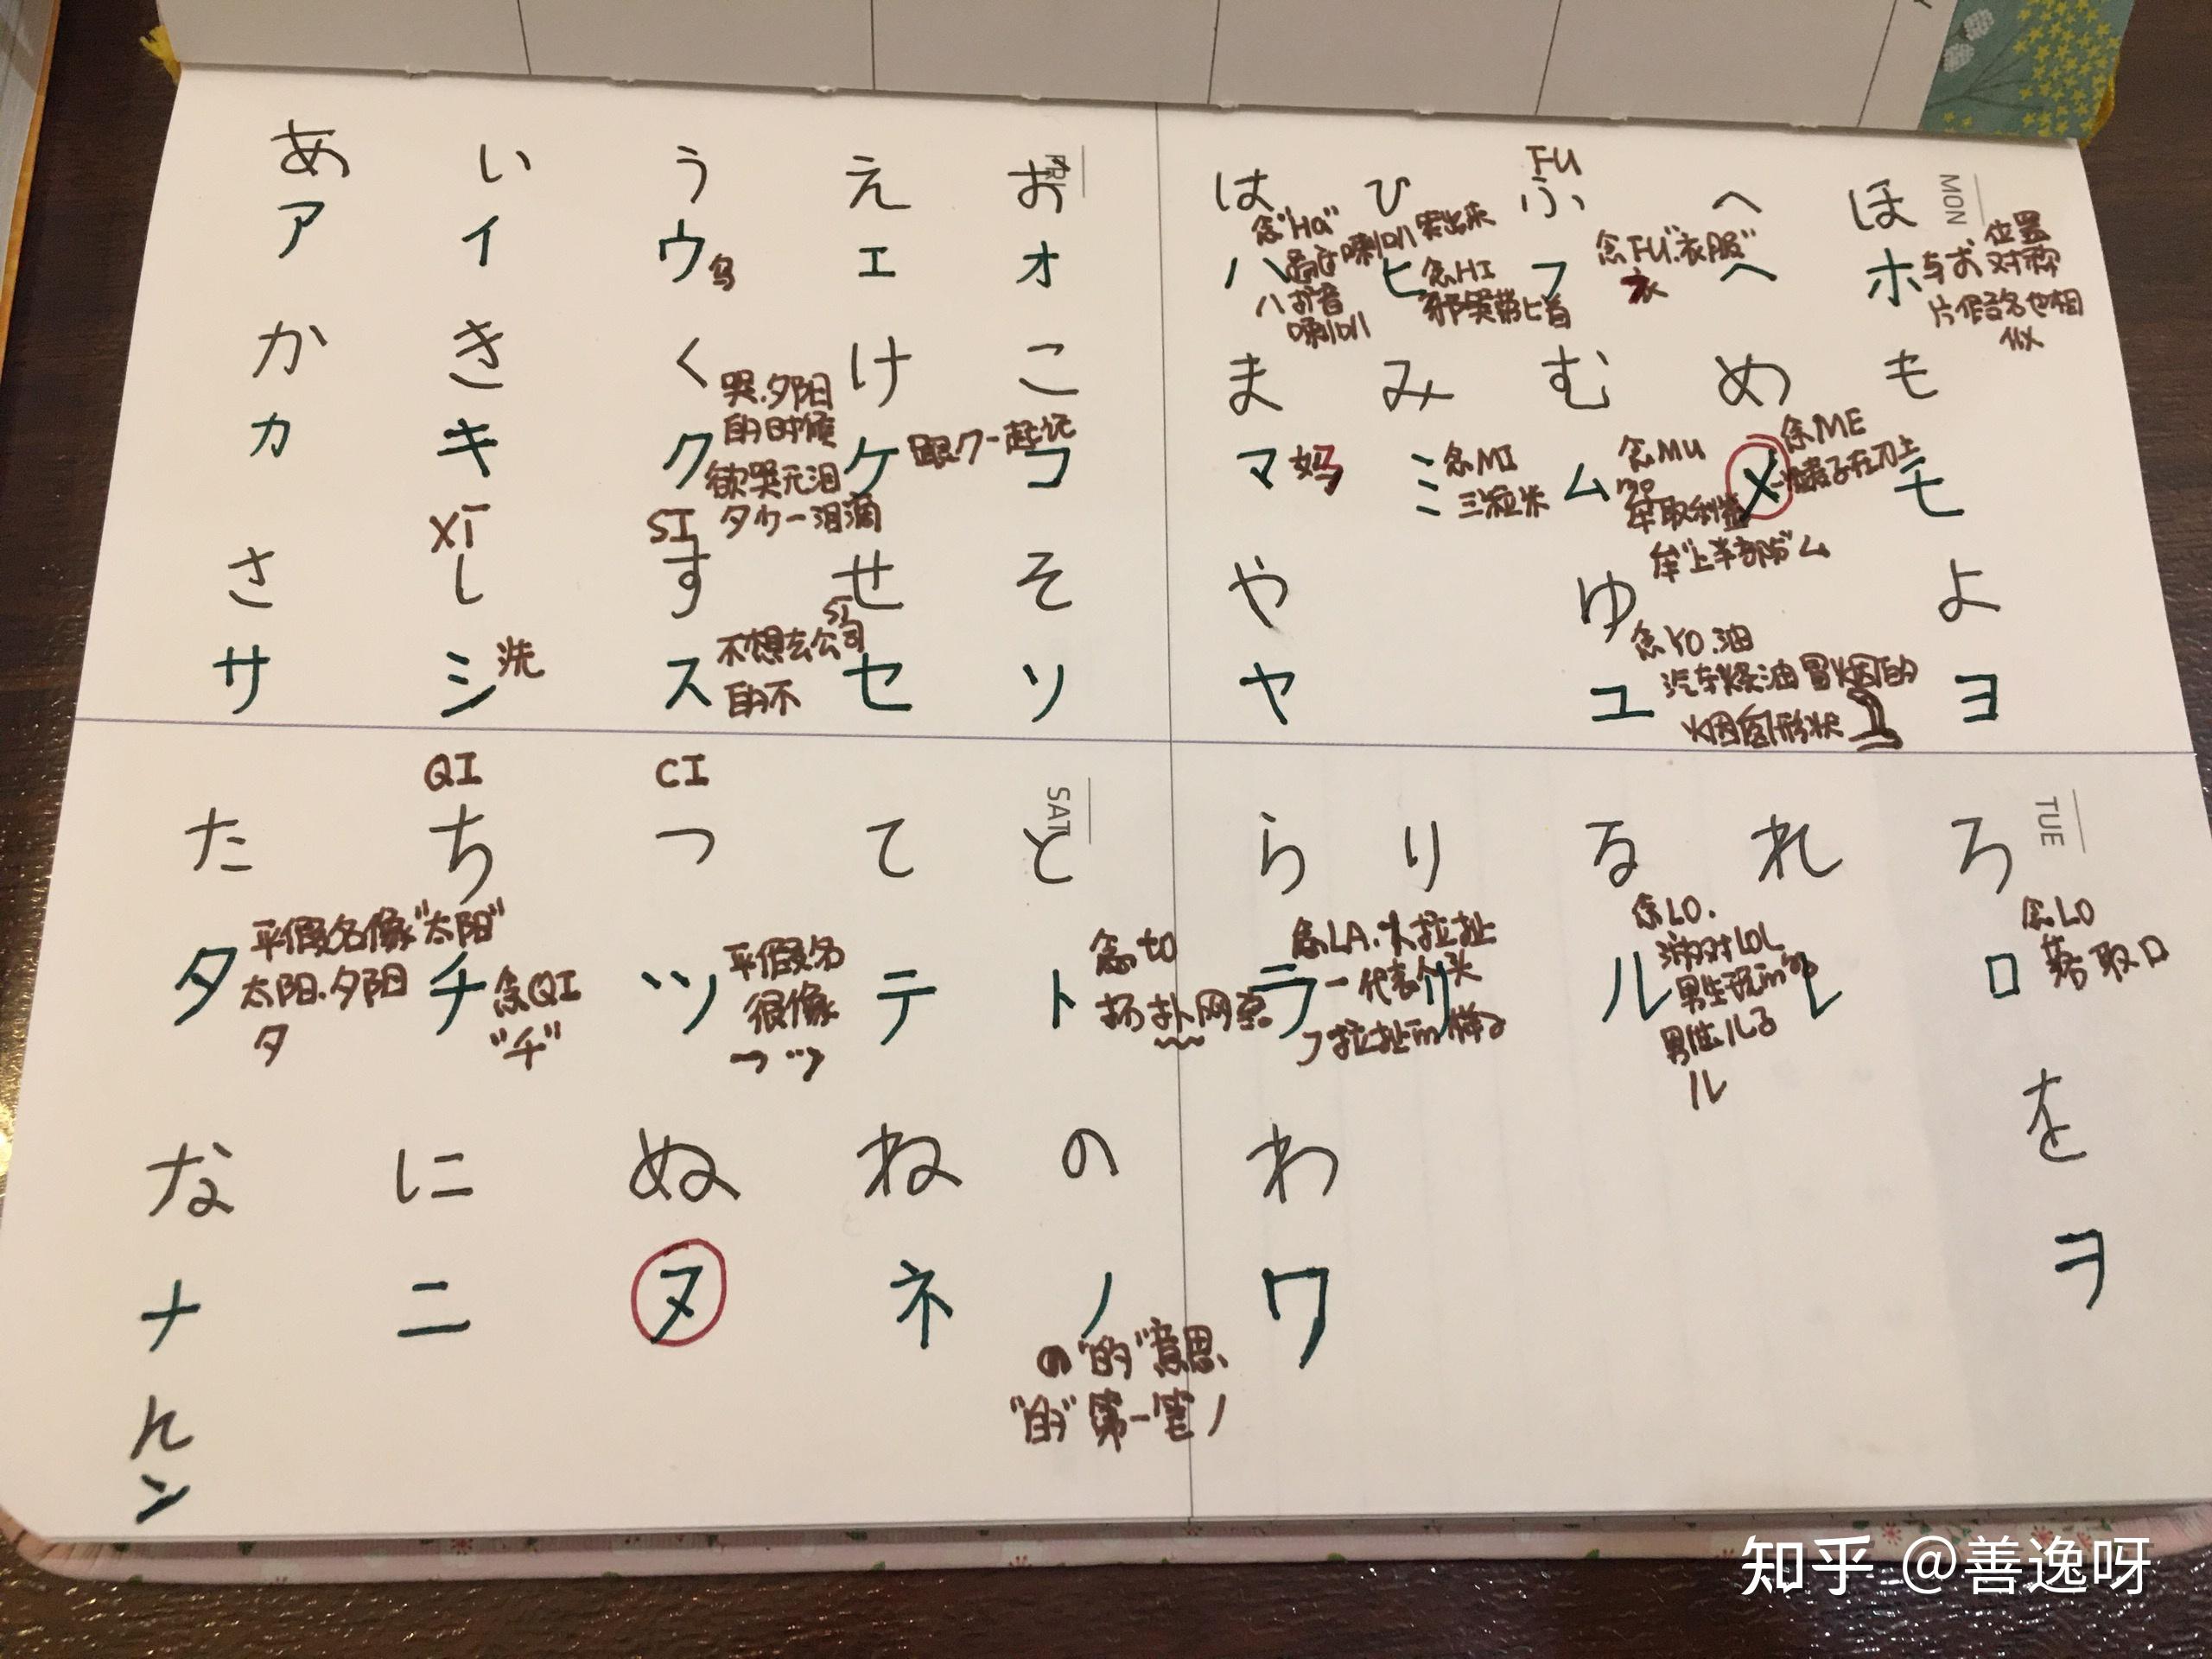 あ い う え お
ア イ ウ乌 エ オ
か き く け こ
哭.夕阳
的时候
カ キ ク ケ 跟ク一起记 コ
欲哭无泪
夕少一泪滴
XI SI
さ し す せ そ
不想去公司
SI
サ シ洗 ス セ ソ
的不
QI CI
た ち つ て と
平假名像"太阳"
太阳.夕阳
夕
タ チ ツ テ ト
念QI
"チ"
平假名
很像
つ ツ
念to
拓扑网络
な に ぬ ね の
ナ ニ ヌ ネ ノ
の"的"意思
"的"第一笔ノ
ん
ン
FRI
SAT
FU
は ひ ふ へ ほ
念"Ha"
ハ ヒ フ ヘ ホ
八 扩音
喇叭
念HI
邪笑带匕首
念FU"衣服"
衣
位置
与 对称
片假名也相
似
ま み む め も
マ妈 ミ ム メ モ
念MI
三粒米
念MU
mo
牟取利益
牟"上半部分"ム
念ME
や ゆ よ
念YO.油
汽车烧油冒烟的
烟囱形状
ヤ ユ ヨ
MON
ら り る れ ろ
念LA.
一代表
ラ リ ル レ ロ
念LO.
LOL
男生玩
男性儿子
儿
念LO
落 取口
わ を
ワ ヲ
TUE
知乎 @善逸呀